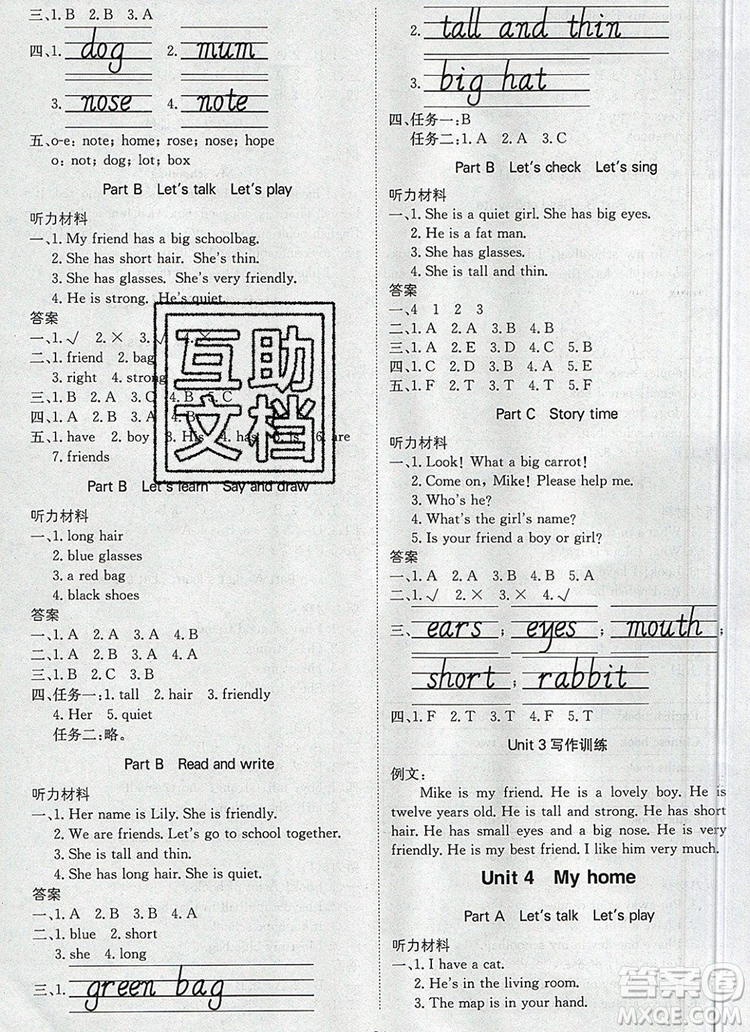 三、1. B 2. B 3. A
四、1. dog 2. mum
3. nose 4. note
五、o-e: note; home; rose; nose; hope
o: not; dog; lot; box
Part B Let's talk Let's play
听力材料
一、1. My friend has a big schoolbag.
2. She has short hair. She's thin.
3. She has glasses. She's very friendly.
4. He is strong. He's quiet.
答案
一、1. √ 2. × 3. √ 4.
二、1. friend 2. bag
3. right 4. strong
三、1. B 2. A 3. C 4. B 5. C
四、1. A 2. A 3. A 4. B 5. B
五、1. have 2. boy 3. His 4. has 5. is 6. are
7. friends
Part B Let's learn Say and draw
听力材料
一、1. long hair
2. blue glasses
3. a red bag
4. black shoes
答案
一、1. A 2. B 3. A 4. B
二、1. A 2. A 3. A 4. A 5. A
三、1. B 2. C 3. B
四、任务一:1. tall 2. hair 3. friendly
4. Her 5. quiet
任务二:略。
Part B Read and write
听力材料
一、1. Her name is Lily. She is friendly.
2. We are friends. Let's go to school together.
3. She is tall and thin.
4. She has long hair. She is quiet.
答案
一、1. A 2. B 3. B 4. A
二、1. blue 2. short
3. she 4. long
三、1. green bag
2. tall and thin
3. big hat
四、任务一:B
任务二:1. A 2. A 3. C
Part B Let's check Let's sing
听力材料
一、1. She is a quiet girl. She has big eyes.
2. He is a fat man.
3. She has glasses.
4. She is tall and thin.
答案
一、4 1 2 3
二、1. A 2. A 3. B 4. B 5. B
三、1. A 2. E 3. D 4. C 5. B
四、1. C 2. D 3. A 4. B 5. E
五、1. F 2. T 3. T 4. F 5. F
Part C Story time
听力材料
一、1. Look! What a big carrot!
2. Come on, Mike! Please help me.
3. Who's he?
4. What's the girl's name?
5. Is your friend a boy or girl?
答案
一、1. A 2. B 3. B 4. A 5. A
二、1. √ 2. × 3. × 4. √
三、ears; eyes; mouth;
short; rabbit
四、1. F 2. T 3. T 4. F 5. T
Unit 3 写作训练
例文:
Mike is my friend. He is a lovely boy. He is
twelve years old. He is tall and strong. He has short
hair. He has small eyes and a big nose. He is very
friendly. He is my best friend. I like him very much.
Unit 4 My home
Part A Let's talk Let's play
听力材料
一、1. I have a cat.
2. He's in the living room.
3. The map is in your hand.
互助
文档
答案圈
MXQE.COM